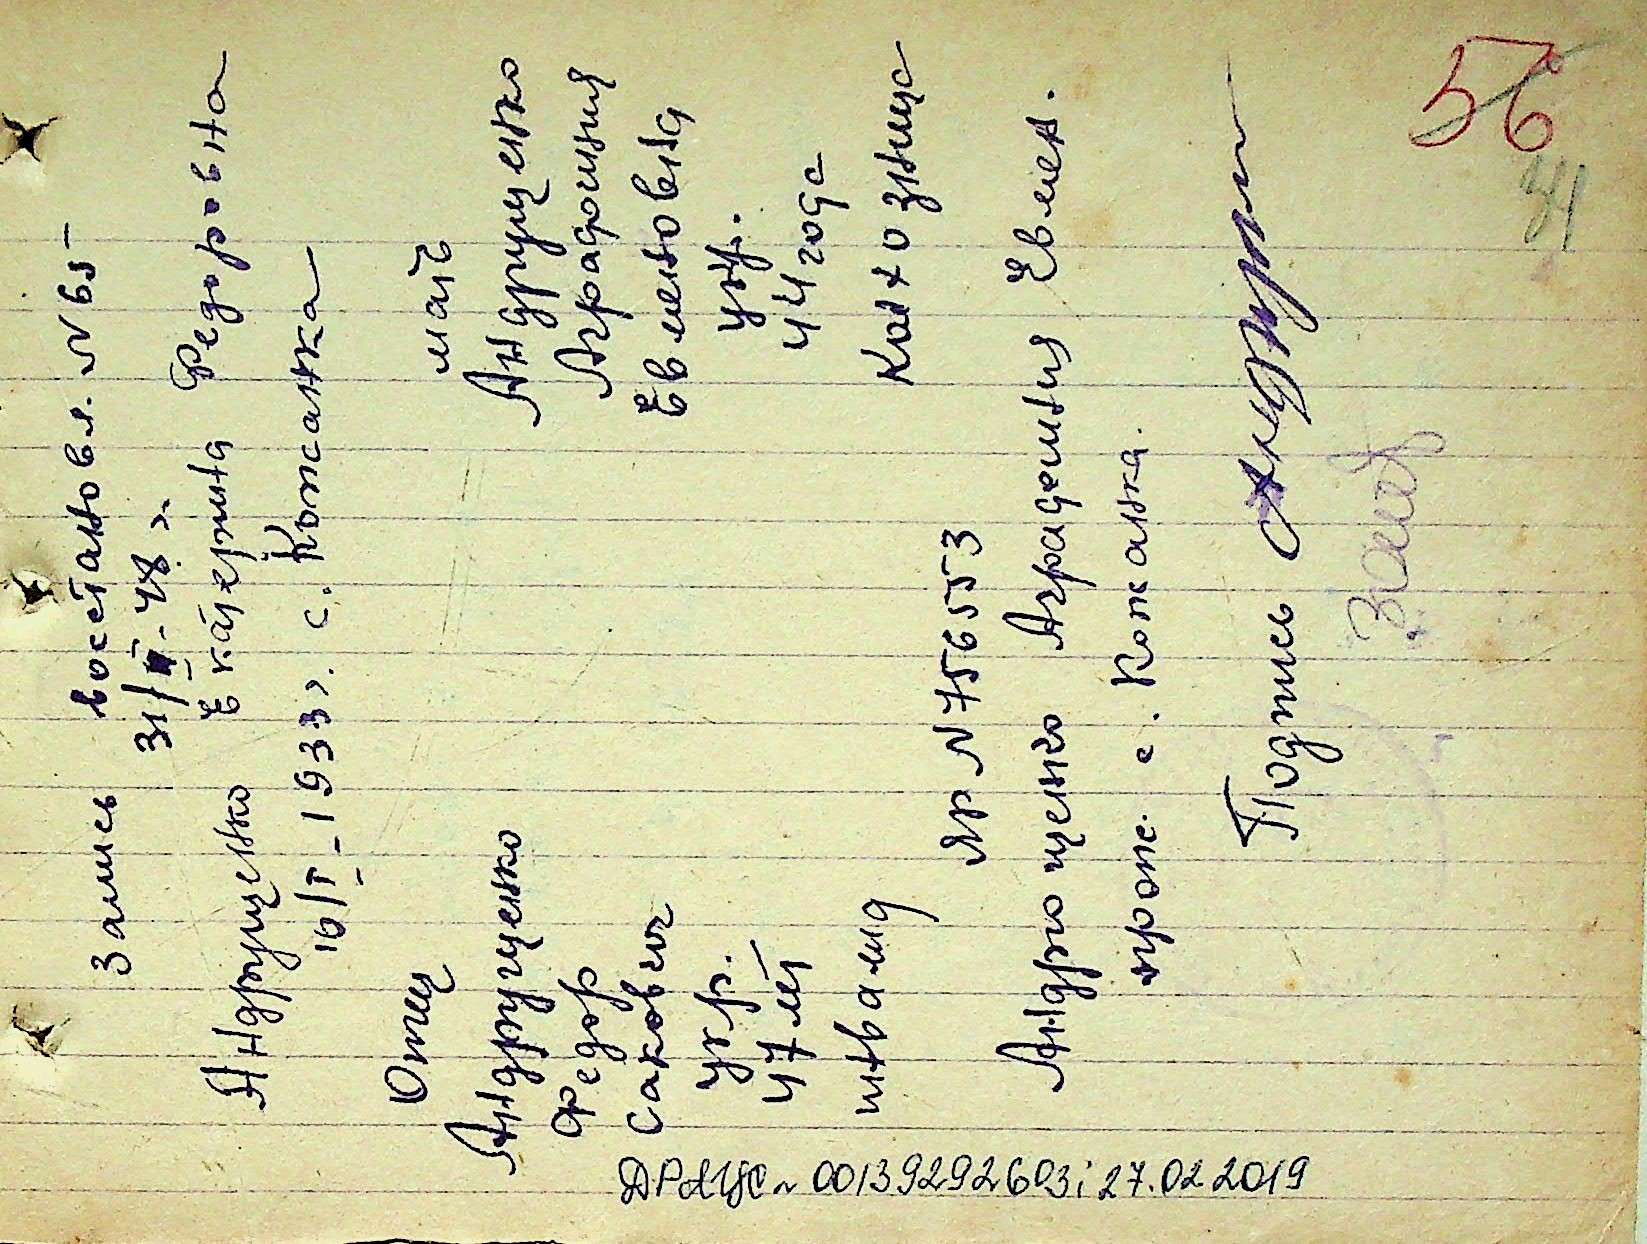 Запись восстановл. N 65
31/III-48 г.
Андрущенко Екатерина Федоровна
10/I-1933 г. с. Кожанка
Отец мать
Андрущенко Андрущенко
Федор Аграфиния
Сакович Евменовна
укр. укр.
47 лет 44 года
инвалид Колхозница
ЯР N 756553
Андрющенко Аграфения Евмен.
прож. с. Кожанка.
Подпись
ДРАЦС № 00139292603; 27.02.2019
56